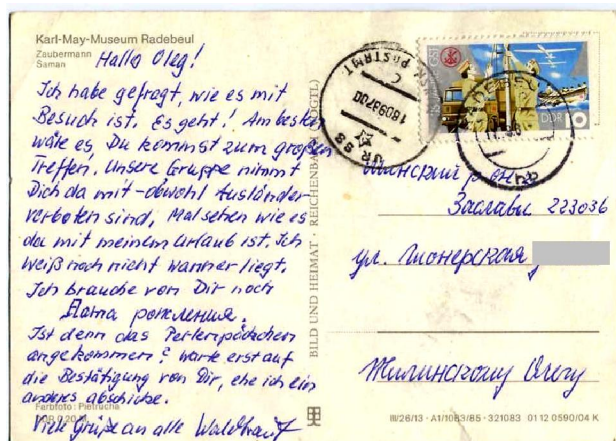 Karl-May-Museum Radebeul
Zaubermann
Šaman
Hallo Oleg!
Ich habe gefragt, wie es mit
Besuch ist. Es geht! Am besten
wäre es, Du kommst zum großen
Treffen. Unsere Gruppe nimmt
Dich da mit - obwohl Ausländer
verboten sind. Mal sehen wie es
da mit meinem Urlaub ist. Ich
weiß noch nicht wann er liegt.
Ich brauche von Dir noch
Дата рождения.
Ist denn das Perlenpäckchen
angekommen? Warte erst auf
die Bestätigung von Dir, ehe ich ein
anderes abschicke.
Viele Grüße an alle
Farbfoto: Pietrucha
BILD UND HEIMAT · REICHENBACH (VOGTL)
DDR
10
Минский р-он
Заславль 223036
ул. Пионерская
Жилинскому Олегу
III/26/13 · A1/1083/85 · 321083 01 12 0590/04 K